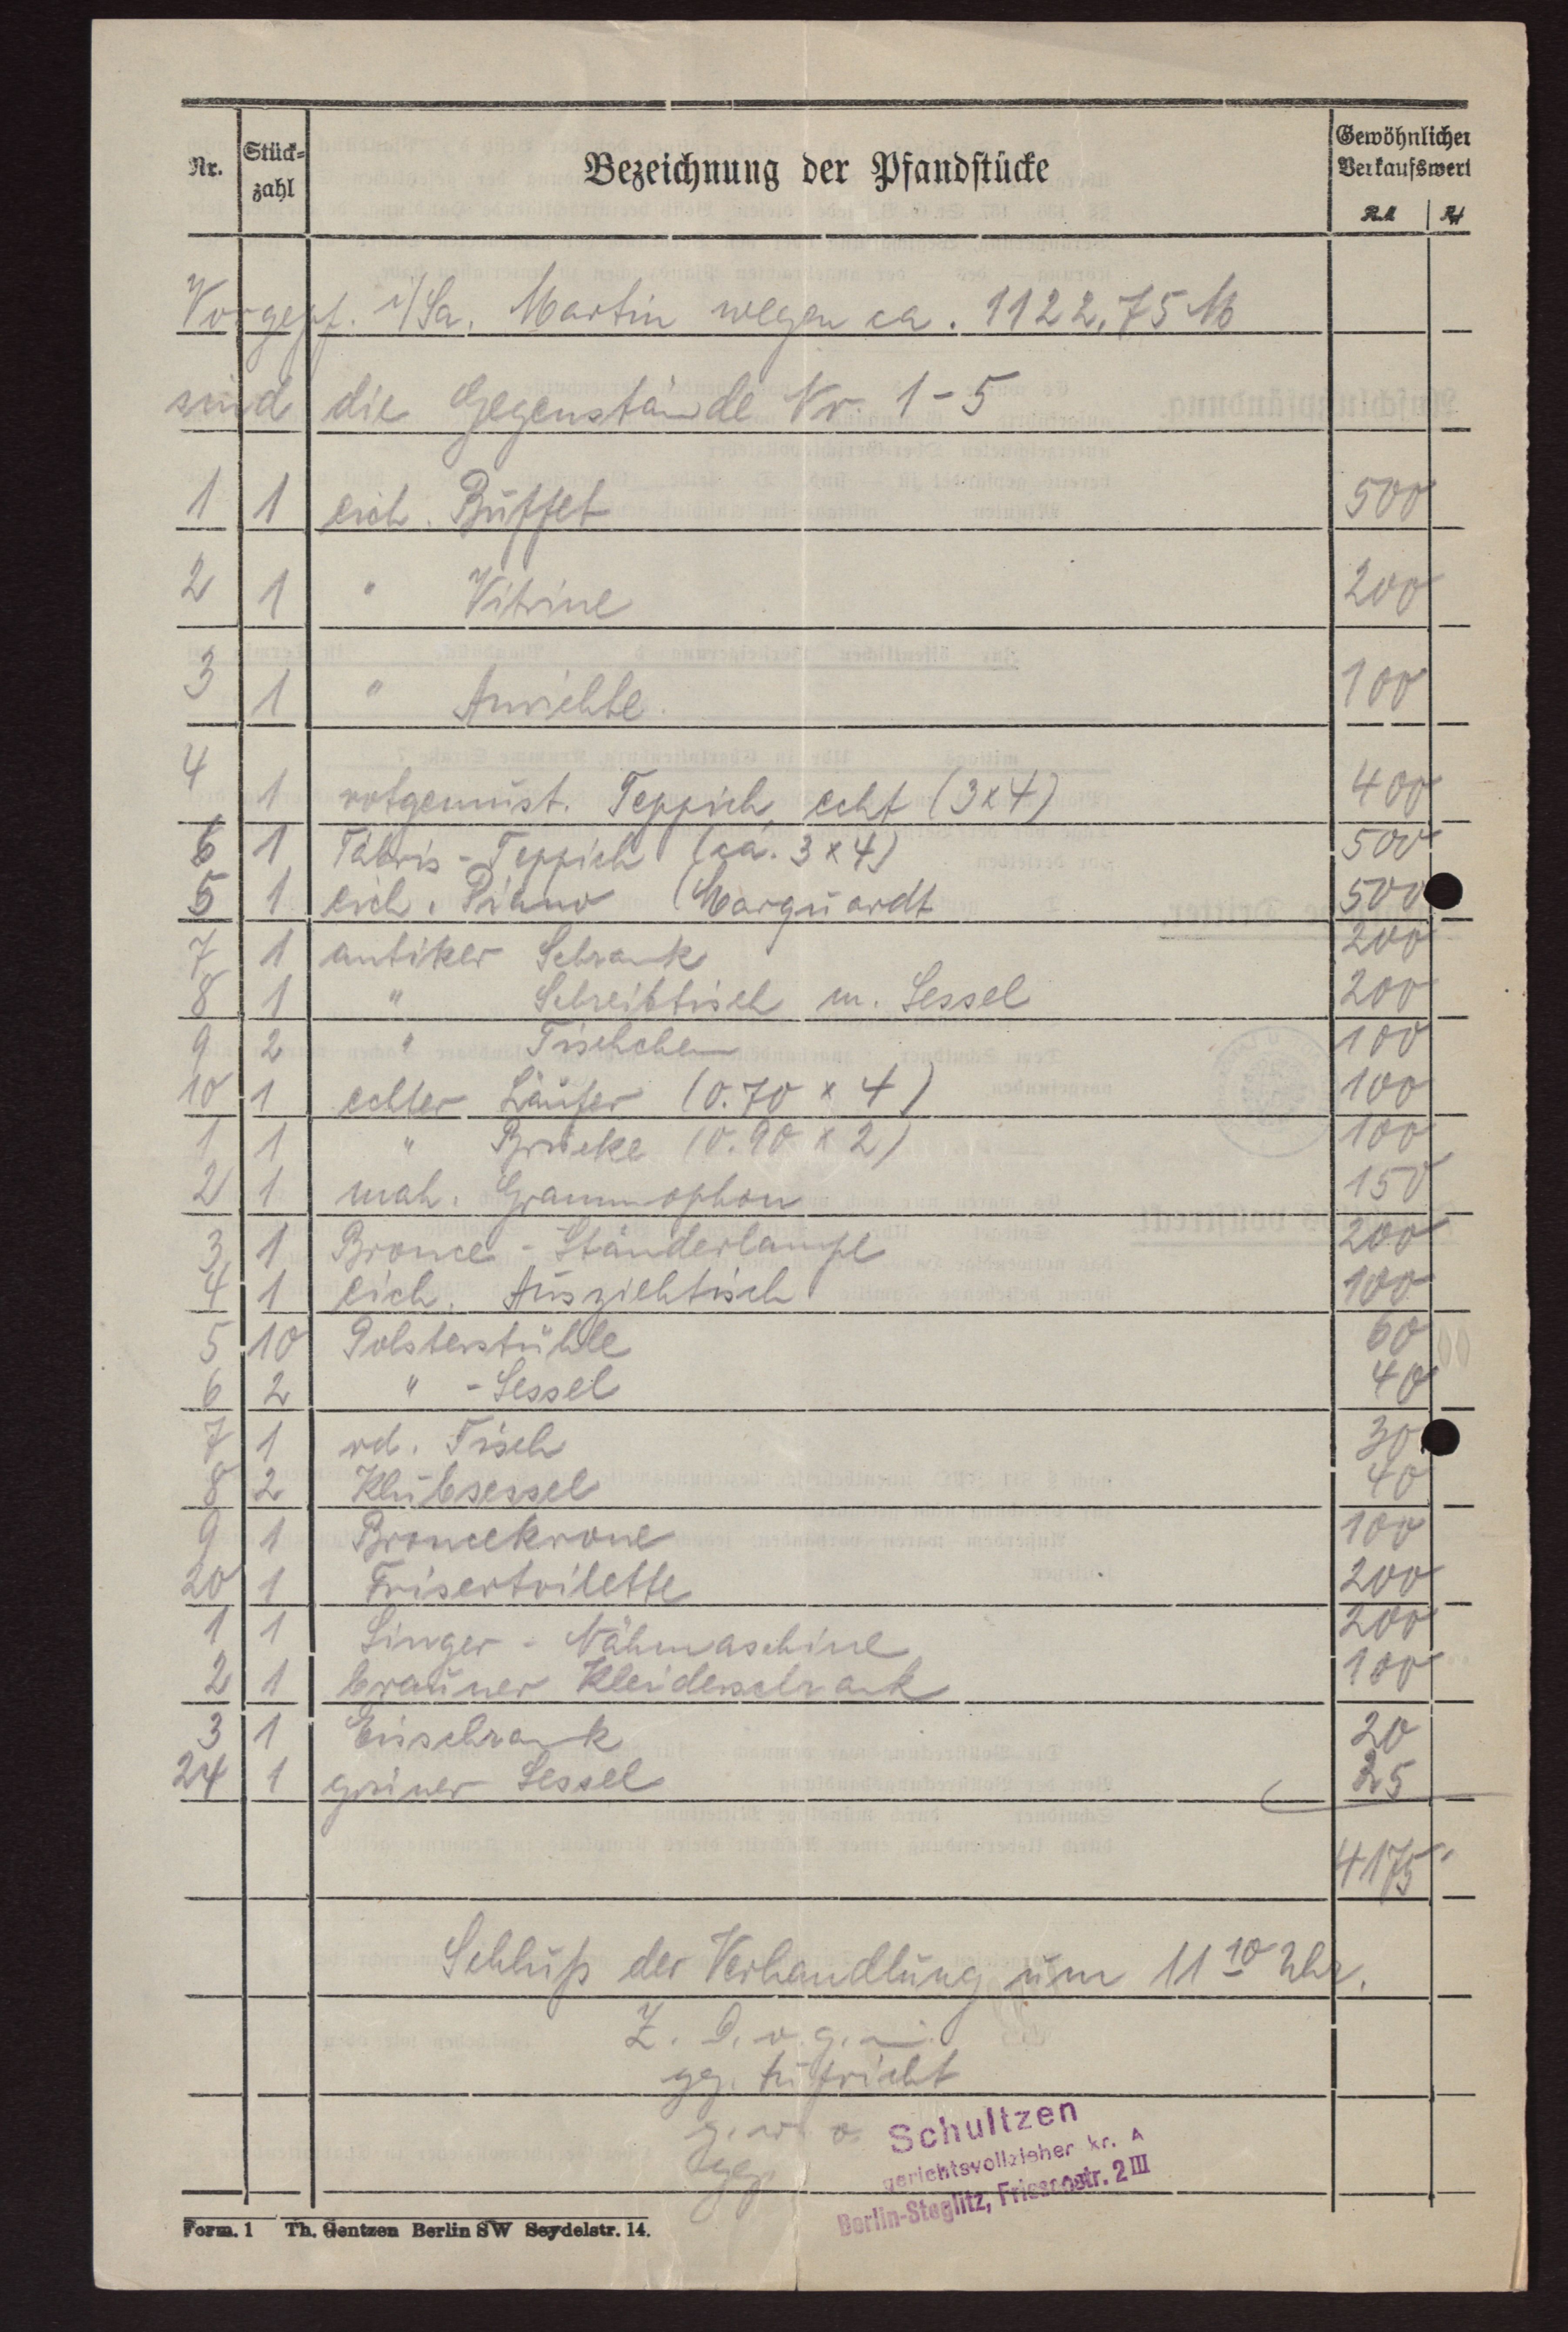 Nr. Stück-zahl Bezeichnung der Pfandstücke Gewöhnlicher Verkaufswert RM Rpf
Vorgepf. i/Sa. Martin wegen ca. 1122,75 M
sind die Gegenstände Nr. 1-5
1 1 eich. Büffet 500
2 1 " Vitrine 200
3 1 " Anrichte. 100
4 1 rotgemust. Teppich, echt (3x4) 400
6 1 Täbris-Teppich (ca. 3x4) 500
5 1 eich. Piano (Marquardt 500
7 1 antiker Schrank 200
8 1 " Schreibtisch m. Sessel 200
9 2 " Tischchen 100
10 1 echter Läufer (0.70 x 4) 100
1 1 " Brücke (0.90 x 2) 100
2 1 mah. Grammophon 150
3 1 Bronce-Ständerlampe 200
4 1 eich. Ausziehtisch 100
5 10 Polsterstühle 60
6 2 " -Sessel 40
7 1 rd. Tisch 30
8 2 Klubsessel 40
9 1 Broncekrone 100
20 1 Frisertoilette 200
1 1 Singer-Nähmaschine 200
2 1 brauner Kleiderschrank 100
3 1 Eisschrank 20
24 1 grüner Sessel 25
4175
Schluß der Verhandlung um 11 10 Uhr.
g. w. o.
gez.
Schultzen
Gerichtsvollzieher kr. A
Berlin-Steglitz, Friesenstr. 2 III
Form. 1 Th. Gentzen Berlin SW Seydelstr. 14.